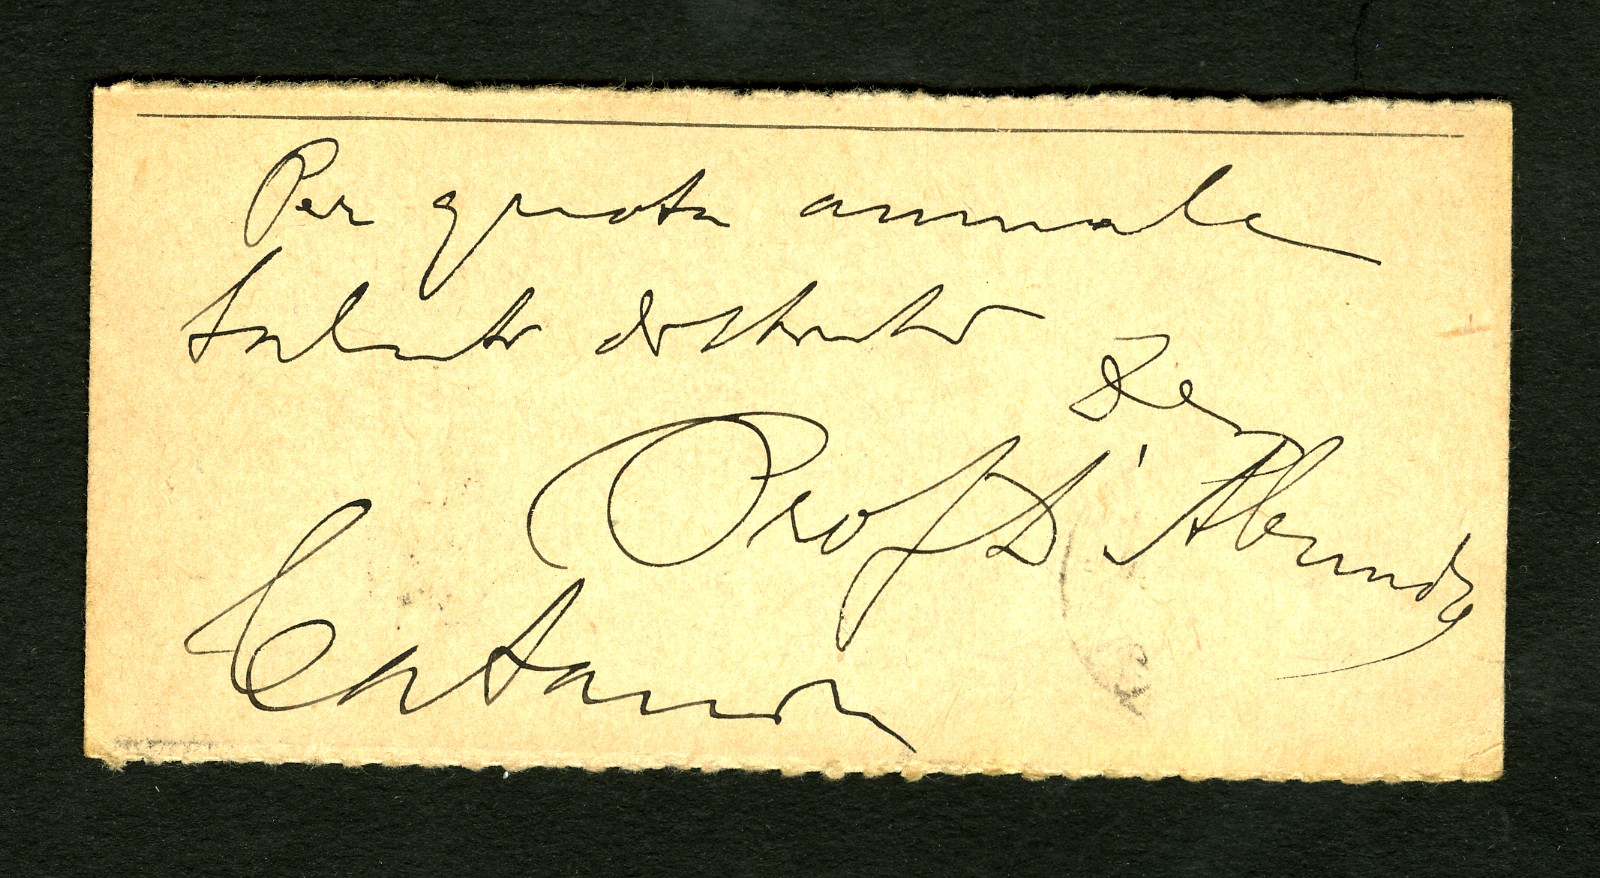 Per quota annuale
Saluti distinti
Dev
Prof D'Abundo
Catania